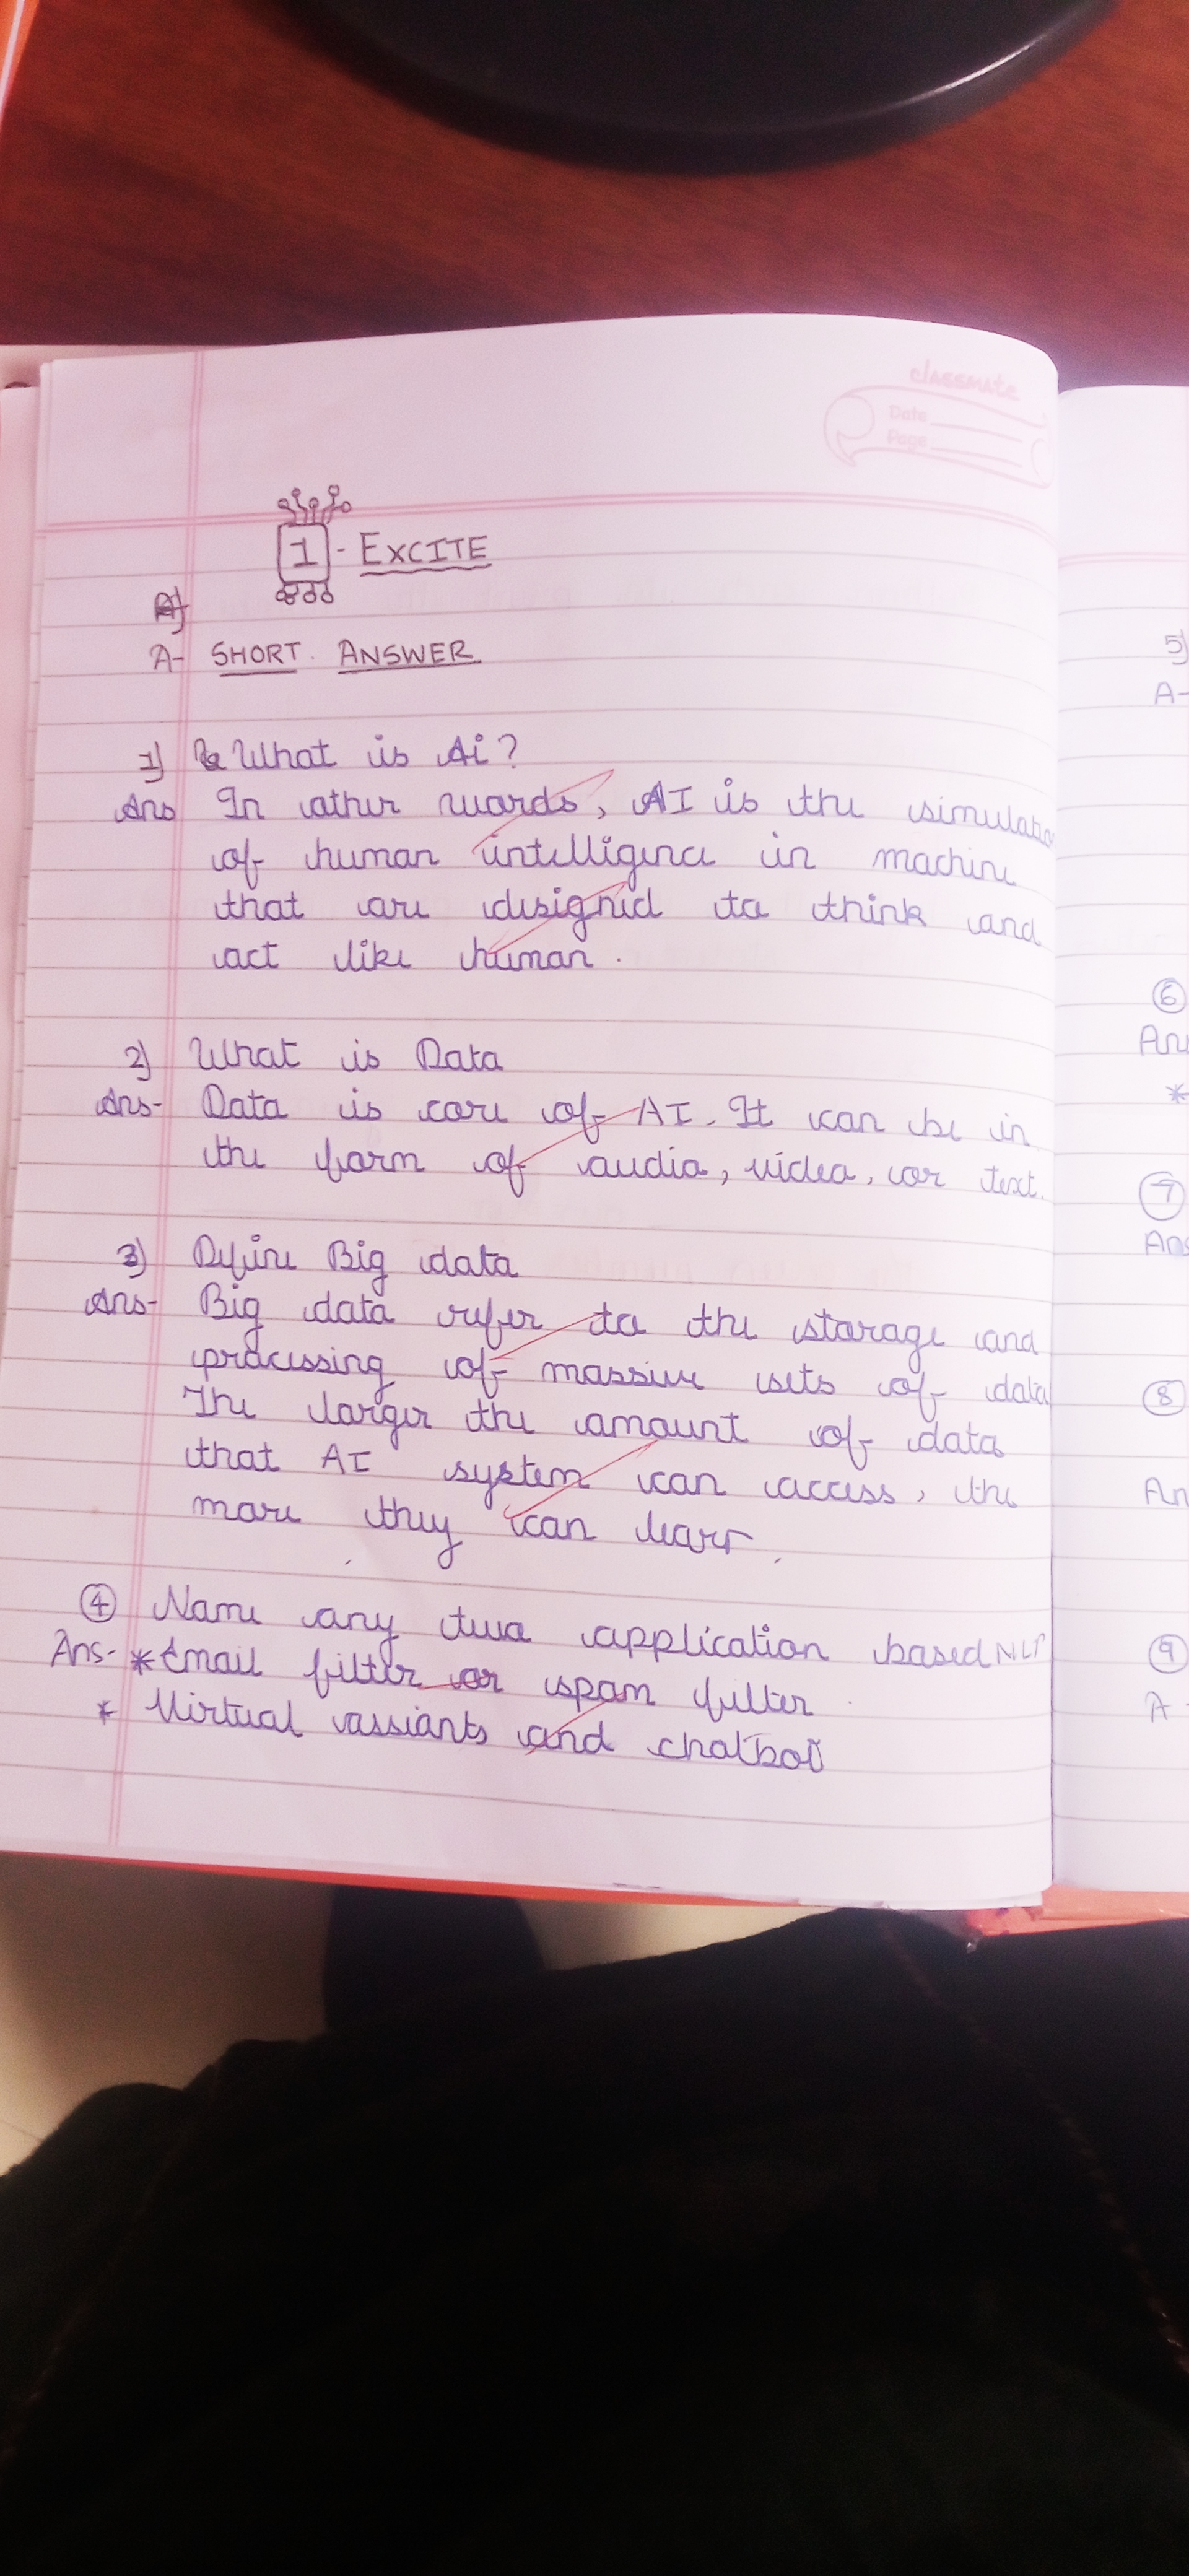 classmate
Date
Page
1 - EXCITE
A)
A- SHORT ANSWER
1) What is Ai?
Ans In other words, AI is the simulatio
of human intelligence in machine
that are designed to think and
act like human.
2) What is Data
Ans- Data is core of AI. It can be in
the form of audio, video, or text.
3) Define Big data
Ans- Big data refer to the storage and
processing of massive sets of data
The larger the amount of data
that AI system can access, the
more they can learn.
4 Name any two application based NLP
Ans- * Email filter or spam filter
* Virtual assiants and chatbot
5)
A-
6
An
*
7
Ans
8
An
9
A-